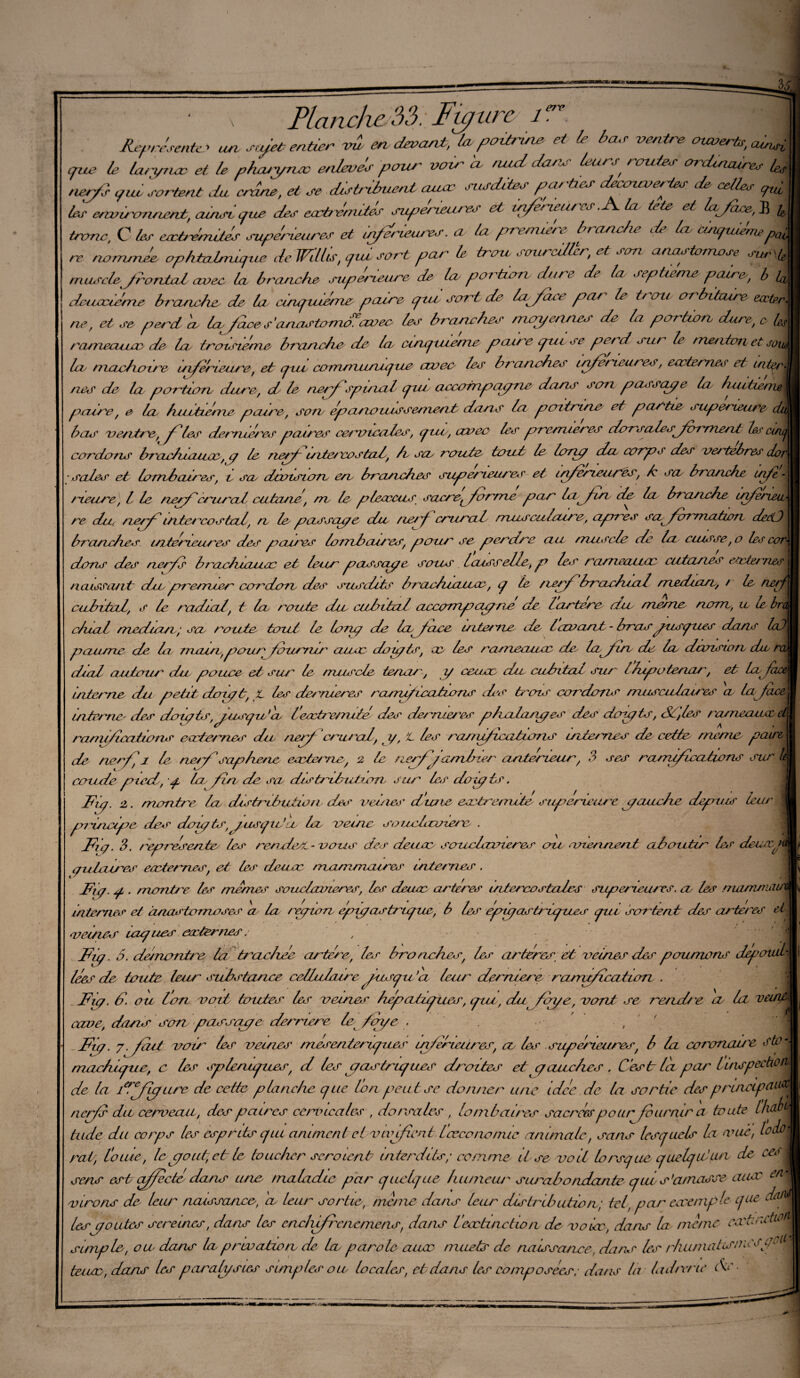 Planche 33. Figure 1.ere
Représente un sujet entier vû en devant, la poitrine et le bas ventre ouverts, ainsi
que le larynx et le pharynx enlevés pour voir à nud dans leurs routes ordinaires les
nerfs qui sortent du crâne, et se distribuent aux susdites parties découvertes de celles qui
les environnent, ainsi que des extrémités supérieures et inférieures. A la tête et la face, B le
tronc, C les extrémités supérieures et inférieures. a la première branche de la cinquième pai
re nommée ophtalmique de Willis, qui sort par le trou sourciller, et son anastomose sur le
muscle frontal avec la branche supérieure de la portion dure de la septième paire, b la
deuxième branche de la cinquième paire qui sort de la face par le trou orbitaire exter
ne, et se perd à la face s'anastomo.se avec les branches moyennes de la portion dure, c les
rameaux de la troisième branche de la cinquième paire qui se perd sur le menton et sous
la machoire inférieure, et qui communique avec les branches inférieures, externes et inter
nes de la portion dure, d le nerf spinal qui accompagne dans son passage la huitième
paire, e la huitième paire, son épanouissement dans la poitrine et partie supérieure du
bas ventre, f les dernières paires cervicales, qui, avec les premières dorsales forment les cinq
cordons brachiaux, g le nerf intercostal, h sa route tout le long du corps des vertèbres dor
sales et lombaires, i sa division en branches supérieures et inférieures, k sa branche infé-
rieure, l le nerf crural cutané, m le plexus sacré formé par la fin de la branche inférieu-
re du nerf intercostal, n le passage du nerf crural musculaire, après sa formation des
branches intérieures des paires lombaires, pour se perdre au muscle de la cuisse, o les cor
dons des nerfs brachiaux et leur passage sous l'aisselle, p les rameaux cutanés externes
naissant du premier cordon des susdits brachiaux, q le nerf brachial median, r le nerf
cubital, s le radial, t la route du cubital accompagné de l'artère du même nom, u le bra
chial median; sa route tout le long de la face interne de l'avant-bras jusques dans la
paume de la main, pour fournir aux doigts, x les rameaux de la fin de la division du ra
dial autour du pouce et sur le muscle tenar, y ceux du cubital sur l'hipotenar, et la face
interne du petit doigt, z les dernieres ramifications des trois cordons musculaires à la face
interne des doigts, jusqu'à l'extremité des dernieres phalanges des doigts, &, les rameaux et
ramifications externes du nerf crural, y, z les ramifications internes de cette même paire
de nerf, 1 le nerf saphene externe, 2 le nerf jambier antérieur, 3 ses ramifications sur le
coude pied, 4 la fin de sa distribution sur les doigts.
Fig. 2. montre la distribution des veines d'une extremité supérieure gauche depuis leur
principe des doigts, jusqu'à la veine souclaviere.
Fig. 3. représente les rendez-vous des deux souclavieres où viennent aboutir les deux ju
gulaires externes, et les deux mammaires internes.
Fig. 4. montre les mêmes souclavieres, les deux artéres intercostales superieures. a les mammaires
internes et anastomoses à la région épigastrique, b les épigastriques qui sortent des artères et
veines iaques externes.
Fig. 5. démontre la trachée artére, les bronches, les artères et veines des poumons dépouil-
lées de toute leur substance cellulaire jusqu'à leur derniere ramification.
Fig. 6. ou l'on voit toutes les veines hépatiques, qui, du foye, vont se rendre à la veine
cave, dans son passage derriere le foye.
Fig. 7. fait voir les veines mésenteriques inférieures, a les supérieures, b la coronaire sto-
machique, c les spleniques, d les gastriques droites et gauches. C'est là par l'inspection
de la 1.re figure de cette planche que l'on peut se donner une idée de la sortie des principaux
nerfs du cerveau, des paires cervicales, dorsales, lombaires sacrées pour fournir à toute l'habi
tude du corps les esprits qui animent et vivifient l'œconomie animale, sans lesquels la vue, l'odo-
rat, l'ouie, le gout, et le toucher seroient interdits; comme il se voit lorsque quelqu'un de ces
sens est affecté dans une maladie par quelque humeur surabondante qui s'amasse aux en-
virons de leur naissance, à leur sortie, même dans leur distribution; tel, par exemple que dans
les goutes sereines, dans les enchifrenemens, dans l'extinction de voix, dans la même extinction
simple, ou dans la privation de la parole aux muets de naissance, dans les rhumatismes gou-
teux, dans les paralysies simples ou locales, et dans les composées; dans la ladrerie &c.